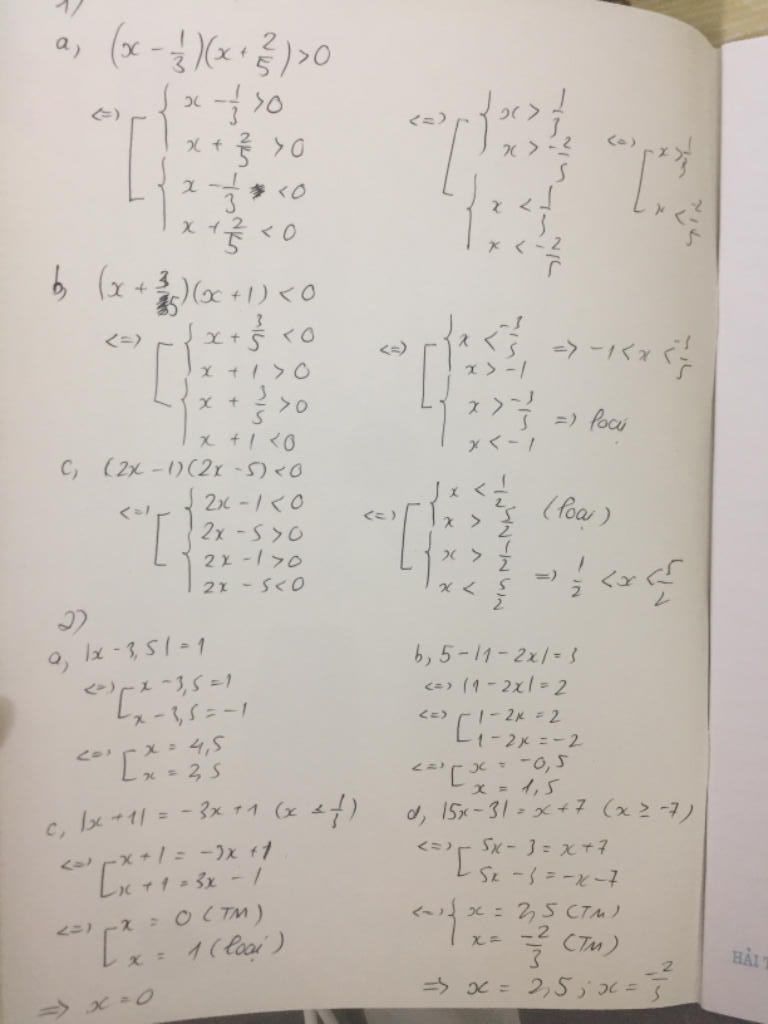 1)
a, (x - 1/3)(x + 2/5) > 0
<=> [ { x - 1/3 > 0
x + 2/5 > 0
{ x - 1/3 < 0
x + 2/5 < 0
<=> [ { x > 1/3
x > -2/5
{ x < 1/3
x < -2/5
<=> [ x > 1/3
x < -2/5
b, (x + 3/5)(x + 1) < 0
<=> [ { x + 3/5 < 0
x + 1 > 0
{ x + 3/5 > 0
x + 1 < 0
<=> [ { x < -3/5
x > -1 => -1 < x < -3/5
{ x > -3/5
x < -1 => loại
c, (2x - 1)(2x - 5) < 0
<=> [ { 2x - 1 < 0
2x - 5 > 0
{ 2x - 1 > 0
2x - 5 < 0
<=> [ { x < 1/2
x > 5/2 (loại)
{ x > 1/2
x < 5/2 => 1/2 < x < 5/2
2)
a, |x - 3,5| = 1
<=> [ x - 3,5 = 1
x - 3,5 = -1
<=> [ x = 4,5
x = 2,5
b, 5 - |1 - 2x| = 3
<=> |1 - 2x| = 2
<=> [ 1 - 2x = 2
1 - 2x = -2
<=> [ x = -0,5
x = 1,5
c, |x + 1| = -3x + 1 (x ≤ 1/3)
<=> [ x + 1 = -3x + 1
x + 1 = 3x - 1
<=> [ x = 0 (TM)
x = 1 (loại)
=> x = 0
d, |5x - 3| = x + 7 (x ≥ -7)
<=> [ 5x - 3 = x + 7
5x - 3 = -x - 7
<=> { x = 2,5 (TM)
x = -2/3 (TM)
=> x = 2,5 ; x = -2/3
HẢI